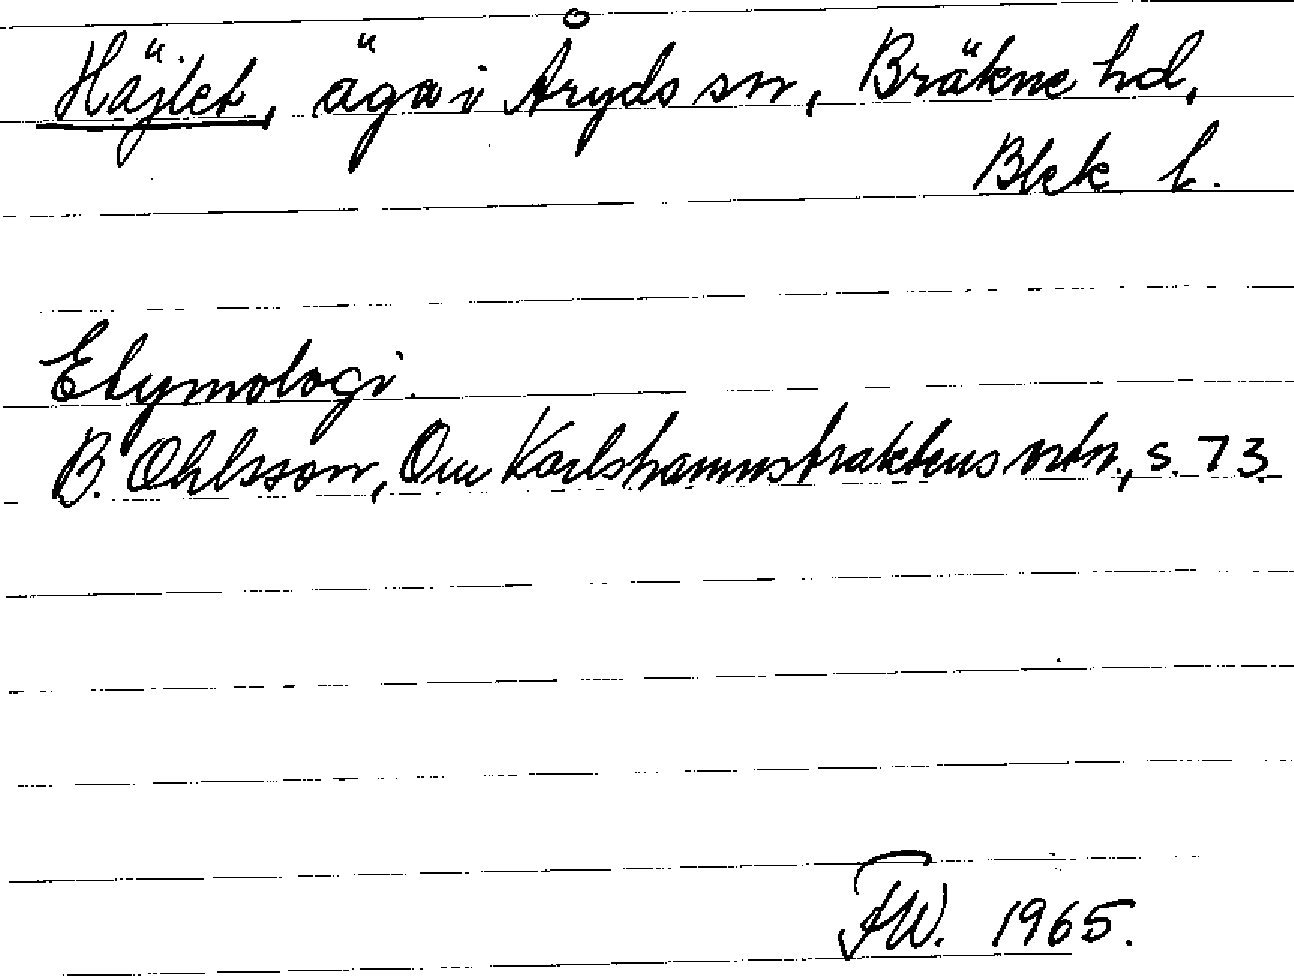 Häjlet, äga i Åryds sn, Bräkne hd,
Blek l.
Etymologi.
B. Ohlsson, Om Karlshamnstraktens nstn., s. 73.
FW. 1965.